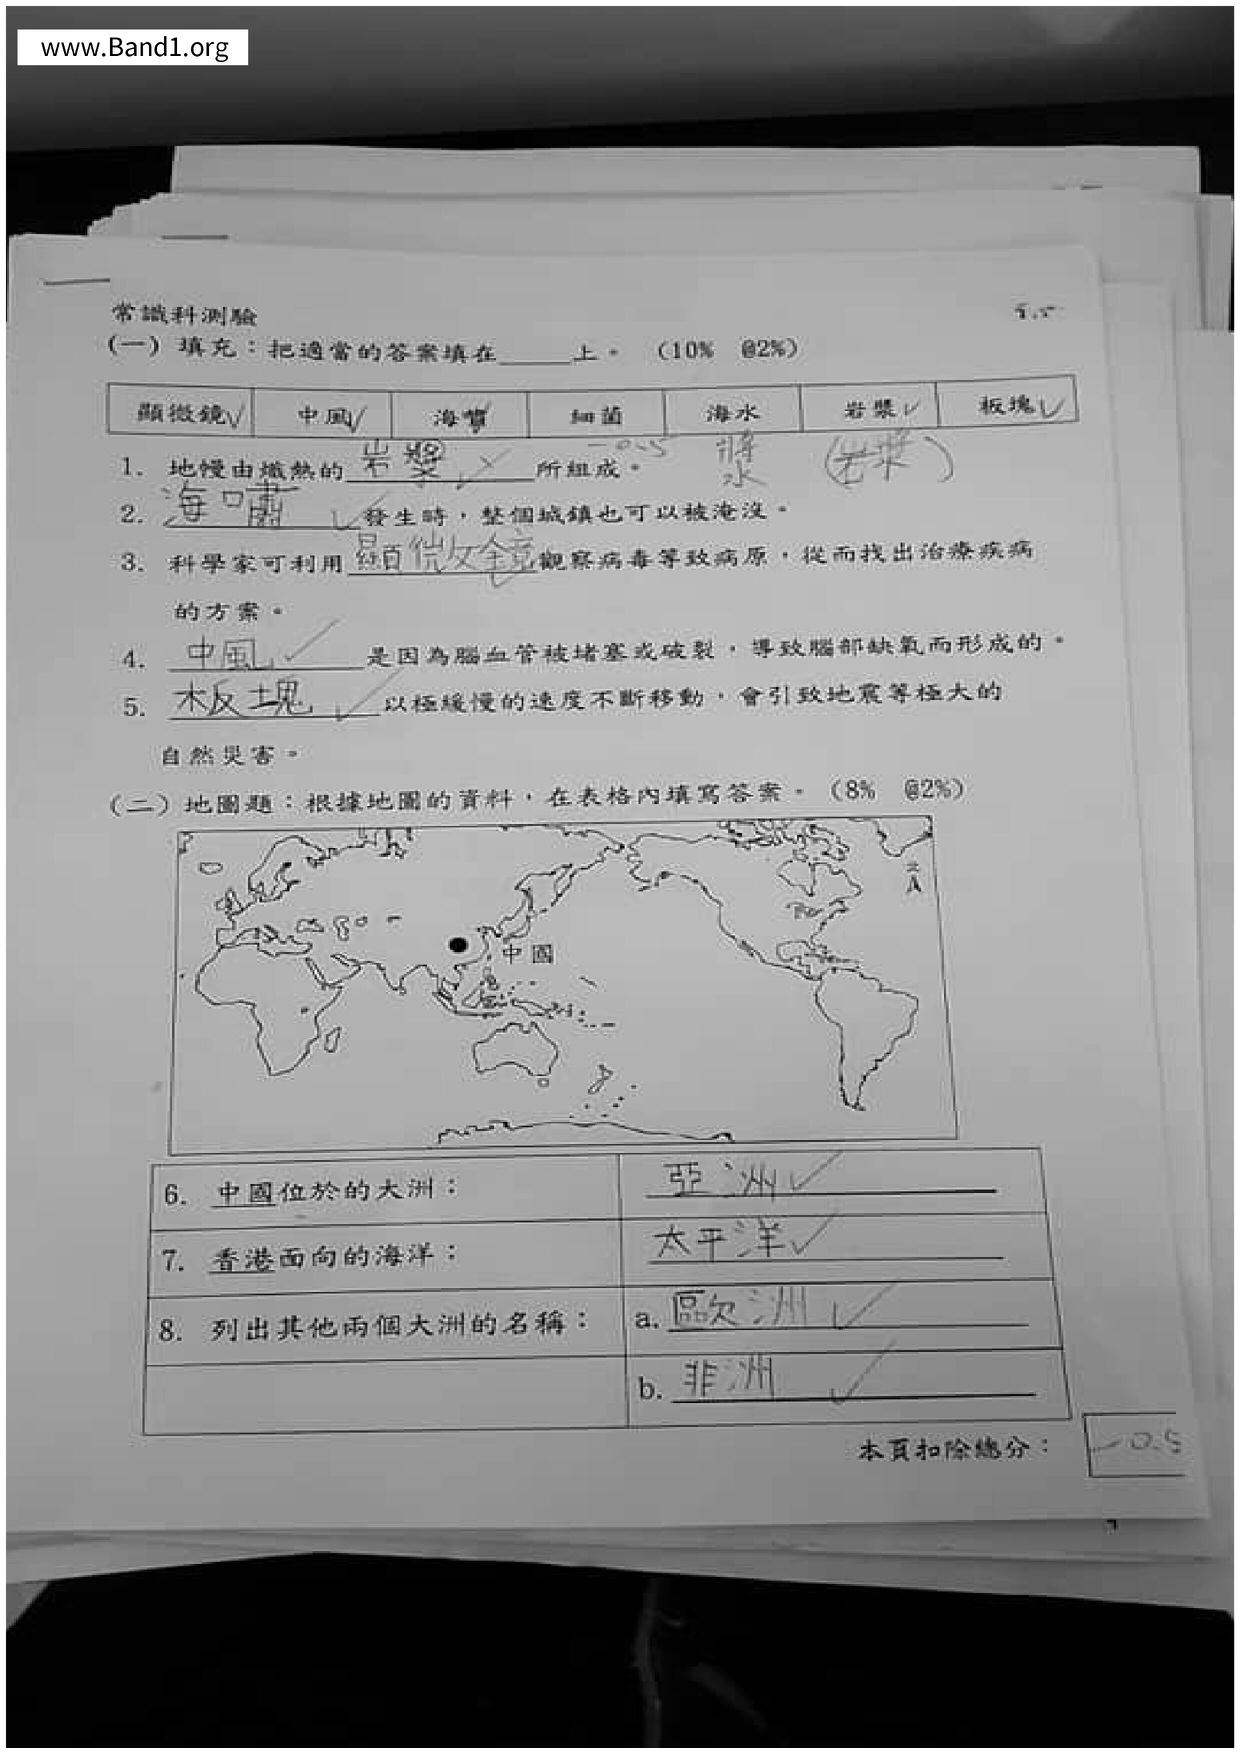 www.Band1.org
常識科測驗
(一) 填充：把適當的答案填在_____上。 (10% @2%)
顯微鏡✓ 中風✓ 海嘯✓ 細菌 海水 岩漿✓ 板塊✓
-0.5 將 (岩漿)
水
1. 地幔由熾熱的 岩漿 所組成。
2. 海嘯 ✓ 發生時，整個城鎮也可以被淹沒。
3. 科學家可利用 顯微鏡 ✓ 觀察病毒等致病原，從而找出治療疾病
的方案。
4. 中風 ✓ 是因為腦血管被堵塞或破裂，導致腦部缺氧而形成的。
5. 板塊 ✓ 以極緩慢的速度不斷移動，會引致地震等極大的
自然災害。
(二) 地圖題：根據地圖的資料，在表格內填寫答案。 (8% @2%)
中國
6. 中國位於的大洲： 亞洲 ✓
7. 香港面向的海洋： 太平洋 ✓
8. 列出其他兩個大洲的名稱： a. 歐洲 ✓
b. 非洲 ✓
本頁扣除總分： -0.5